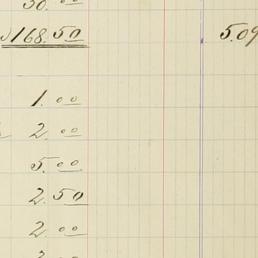 50.00
168.50 5.09
1.00
2.00
5.00
2.50
2.00